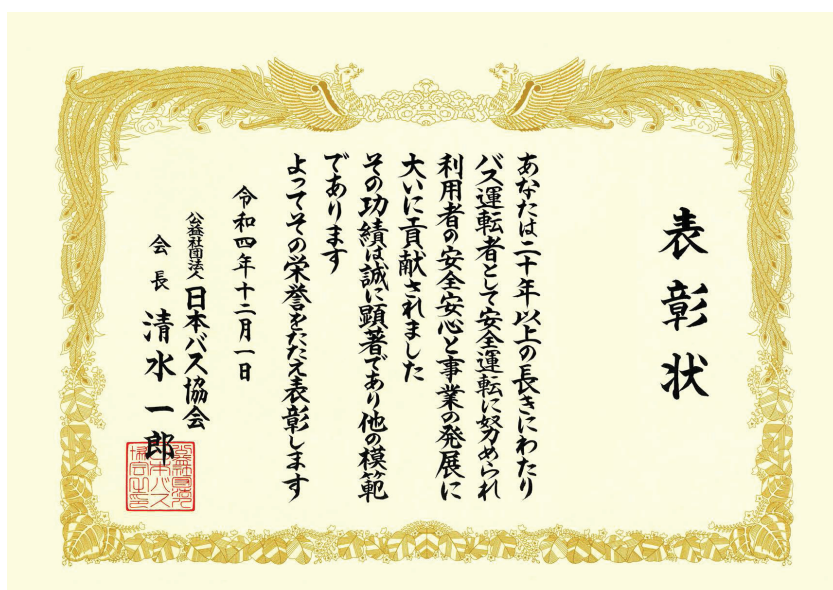 表彰状
あなたは二十年以上の長きにわたり
バス運転者として安全運転に努められ
利用者の安全安心と事業の発展に
大いに貢献されました
その功績は誠に顕著であり他の模範
であります
よってその栄誉をたたえ表彰します
令和四年十二月一日
公益社団法人 日本バス協会
会長 清水一郎